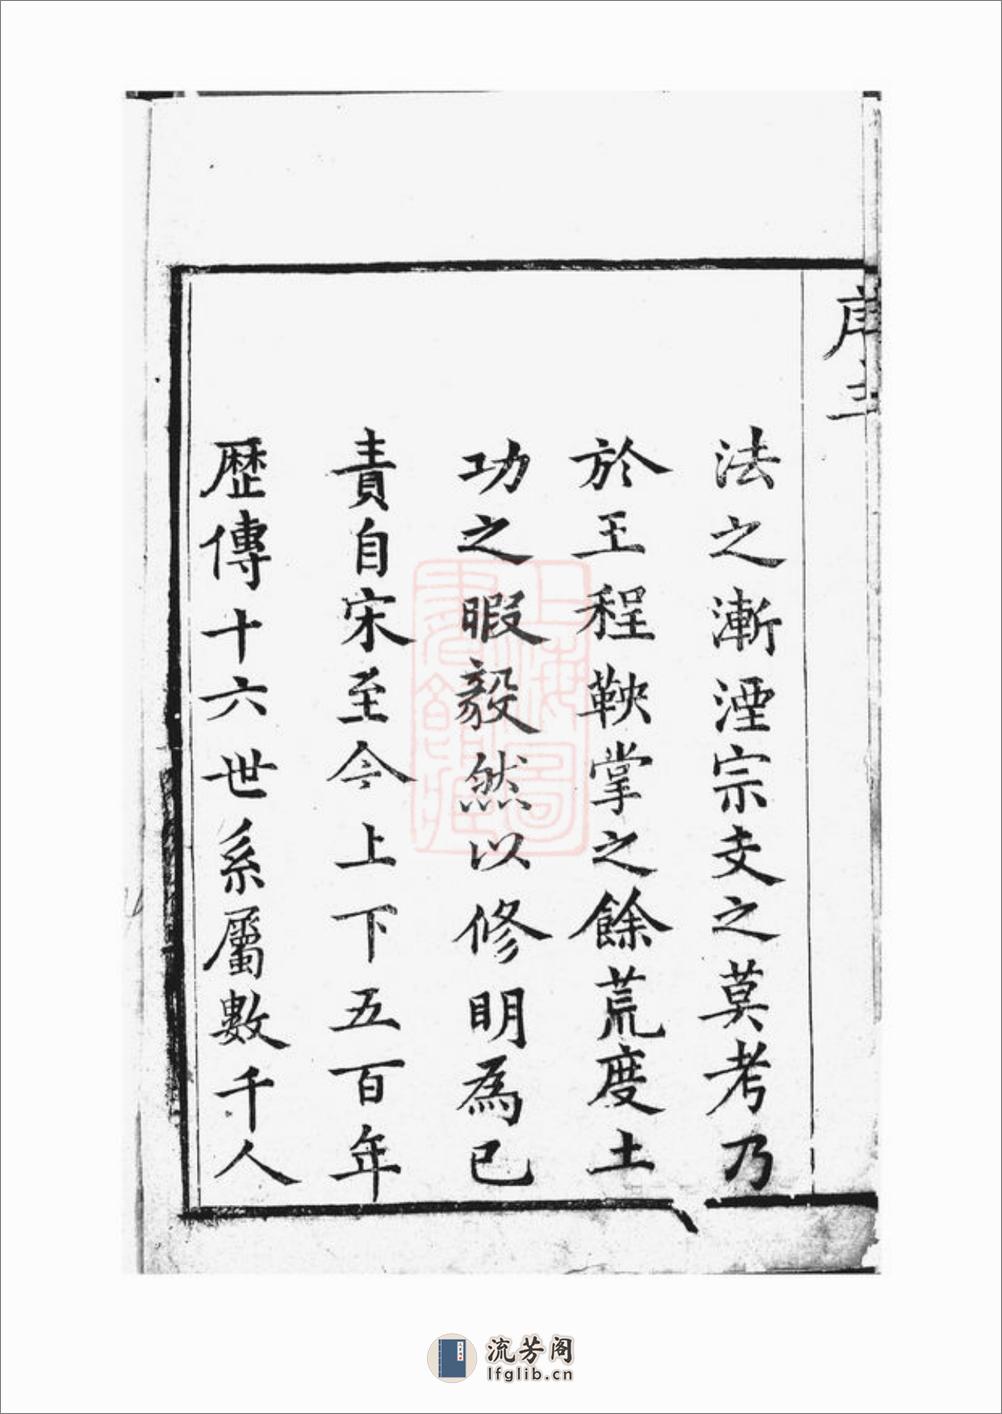 序
法之漸湮宗支之莫考乃
於王程鞅掌之餘荒度土
功之暇毅然以修明為已
責自宋至今上下五百年
歷傳十六世系屬數千人
上海圖書館藏
流芳阁
lfglib.cn